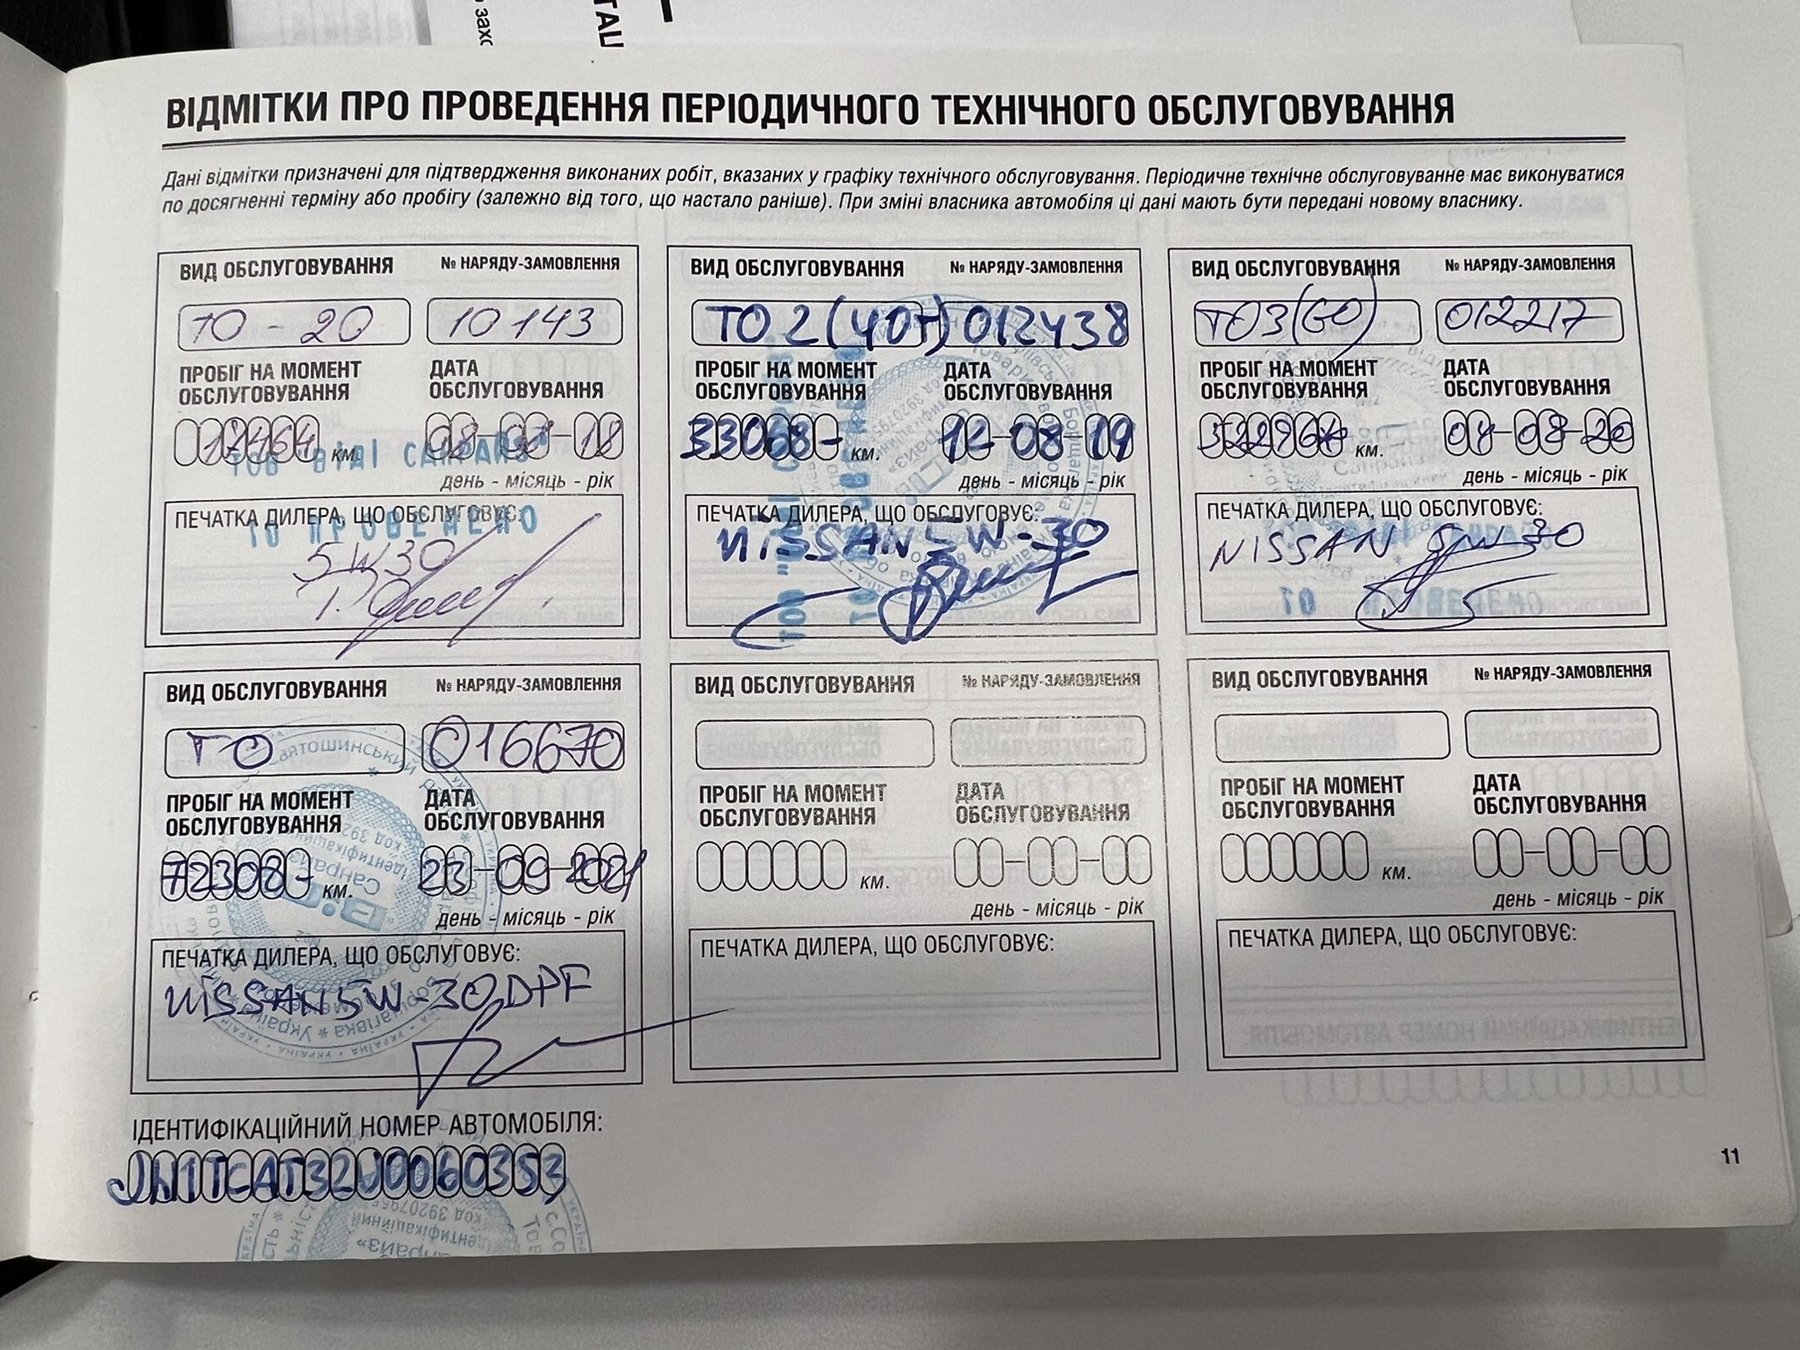 ВІДМІТКИ ПРО ПРОВЕДЕННЯ ПЕРІОДИЧНОГО ТЕХНІЧНОГО ОБСЛУГОВУВАННЯ
Дані відмітки призначені для підтвердження виконаних робіт, вказаних у графіку технічного обслуговування. Періодичне технічне обслуговуванне має виконуватися
по досягненні терміну або пробігу (залежно від того, що настало раніше). При зміні власника автомобіля ці дані мають бути передані новому власнику.
ВИД ОБСЛУГОВУВАННЯ № НАРЯДУ-ЗАМОВЛЕННЯ
ТО - 20 10143
ПРОБІГ НА МОМЕНТ ОБСЛУГОВУВАННЯ
ДАТА ОБСЛУГОВУВАННЯ
км.
день - місяць - рік
ТОВ "ВІДІ САНРАЙЗ"
ПЕЧАТКА ДИЛЕРА, ЩО ОБСЛУГОВУЄ:
ТО ПРОВЕДЕНО
5W30
ВИД ОБСЛУГОВУВАННЯ № НАРЯДУ-ЗАМОВЛЕННЯ
ТО 2 (40т) 012438
ПРОБІГ НА МОМЕНТ ОБСЛУГОВУВАННЯ
ДАТА ОБСЛУГОВУВАННЯ
33068- км. 12-08-19
день - місяць - рік
ПЕЧАТКА ДИЛЕРА, ЩО ОБСЛУГОВУЄ:
NISSAN 5W-30
ВИД ОБСЛУГОВУВАННЯ № НАРЯДУ-ЗАМОВЛЕННЯ
ТО3(60) 012217
ПРОБІГ НА МОМЕНТ ОБСЛУГОВУВАННЯ
ДАТА ОБСЛУГОВУВАННЯ
км. 04-08-20
день - місяць - рік
ПЕЧАТКА ДИЛЕРА, ЩО ОБСЛУГОВУЄ:
NISSAN 5W-30
ВИД ОБСЛУГОВУВАННЯ № НАРЯДУ-ЗАМОВЛЕННЯ
ТО 016670
ПРОБІГ НА МОМЕНТ ОБСЛУГОВУВАННЯ
ДАТА ОБСЛУГОВУВАННЯ
72308- км. 23-09-2021
день - місяць - рік
ПЕЧАТКА ДИЛЕРА, ЩО ОБСЛУГОВУЄ:
NISSAN 5W-30 DPF
ВИД ОБСЛУГОВУВАННЯ № НАРЯДУ-ЗАМОВЛЕННЯ
ПРОБІГ НА МОМЕНТ ОБСЛУГОВУВАННЯ
ДАТА ОБСЛУГОВУВАННЯ
км.
день - місяць - рік
ПЕЧАТКА ДИЛЕРА, ЩО ОБСЛУГОВУЄ:
ВИД ОБСЛУГОВУВАННЯ № НАРЯДУ-ЗАМОВЛЕННЯ
ПРОБІГ НА МОМЕНТ ОБСЛУГОВУВАННЯ
ДАТА ОБСЛУГОВУВАННЯ
км.
день - місяць - рік
ПЕЧАТКА ДИЛЕРА, ЩО ОБСЛУГОВУЄ:
ІДЕНТИФІКАЦІЙНИЙ НОМЕР АВТОМОБІЛЯ:
JN1TCAT32U0060353
11